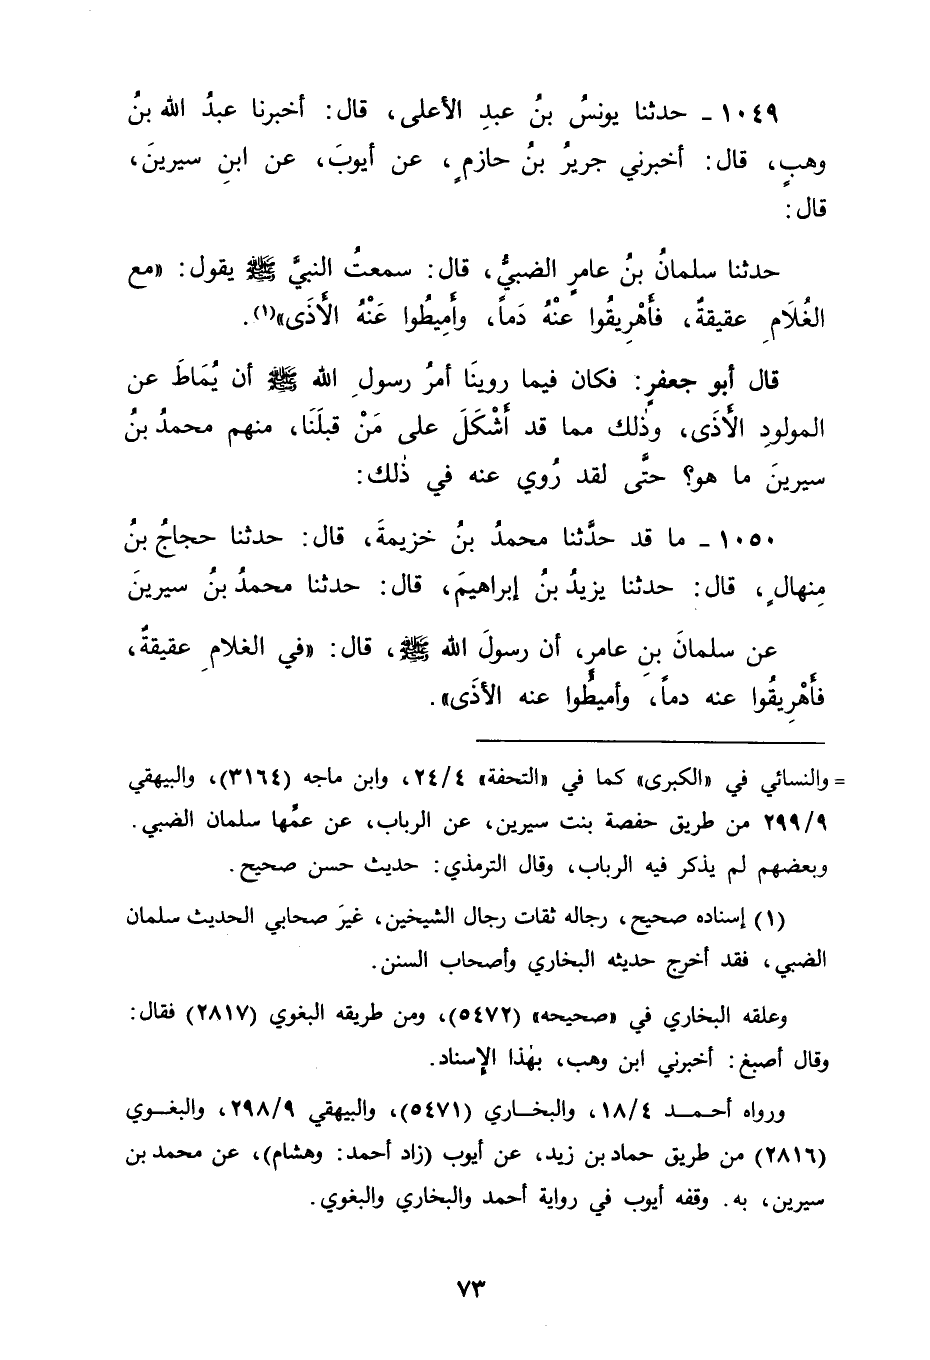 ١٠٤٩ - حدثنا يونسُ بنُ عبدِ الأعلى، قال: أخبرنا عبدُ الله بنُ
وهبٍ، قال: أخبرني جريرُ بنُ حازمٍ، عن أيوبَ، عن ابنِ سيرينَ،
قال:
حدثنا سلمانُ بنُ عامرٍ الضبيُّ، قال: سمعتُ النبيَّ ﷺ يقول: «مع
الغُلَامِ عقيقةٌ، فأَهْرِيقُوا عنْهُ دَماً، وأَمِيطُوا عَنْهُ الأَذَى»(١).
قال أبو جعفرٍ: فكان فيما روينَا أمرُ رسولِ الله ﷺ أن يُمَاطَ عن
المولودِ الأَذَى، وذٰلك مما قد أَشْكَلَ على مَنْ قبلَنَا، منهم محمدُ بنُ
سيرينَ ما هو؟ حتَّى لقد رُوي عنه في ذٰلك:
١٠٥٠ - ما قد حدَّثنا محمدُ بنُ خزيمةَ، قال: حدثنا حجاجُ بنُ
مِنهالٍ، قال: حدثنا يزيدُ بنُ إبراهيمَ، قال: حدثنا محمدُ بنُ سيرينَ
عن سلمانَ بنِ عامرٍ، أن رسولَ الله ﷺ، قال: «في الغلامِ عقيقةٌ،
فأَهْرِيقُوا عنه دماً، وأميطُوا عنه الأذَى».
= والنسائي في «الكبرى» كما في «التحفة» ٢٤/٤، وابن ماجه (٣١٦٤)، والبيهقي
٢٩٩/٩ من طريق حفصة بنت سيرين، عن الرباب، عن عمِّها سلمان الضبي.
وبعضهم لم يذكر فيه الرباب، وقال الترمذي: حديث حسن صحيح.
(١) إسناده صحيح، رجاله ثقات رجال الشيخين، غيرَ صحابي الحديث سلمان
الضبي، فقد أخرج حديثه البخاري وأصحاب السنن.
وعلقه البخاري في «صحيحه» (٥٤٧٢)، ومن طريقه البغوي (٢٨١٧) فقال:
وقال أصبغ: أخبرني ابن وهب، بهٰذا الإسناد.
ورواه أحمد ١٨/٤، والبخاري (٥٤٧١)، والبيهقي ٢٩٨/٩، والبغوي
(٢٨١٦) من طريق حماد بن زيد، عن أيوب (زاد أحمد: وهشام)، عن محمد بن
سيرين، به. وقفه أيوب في رواية أحمد والبخاري والبغوي.
٧٣